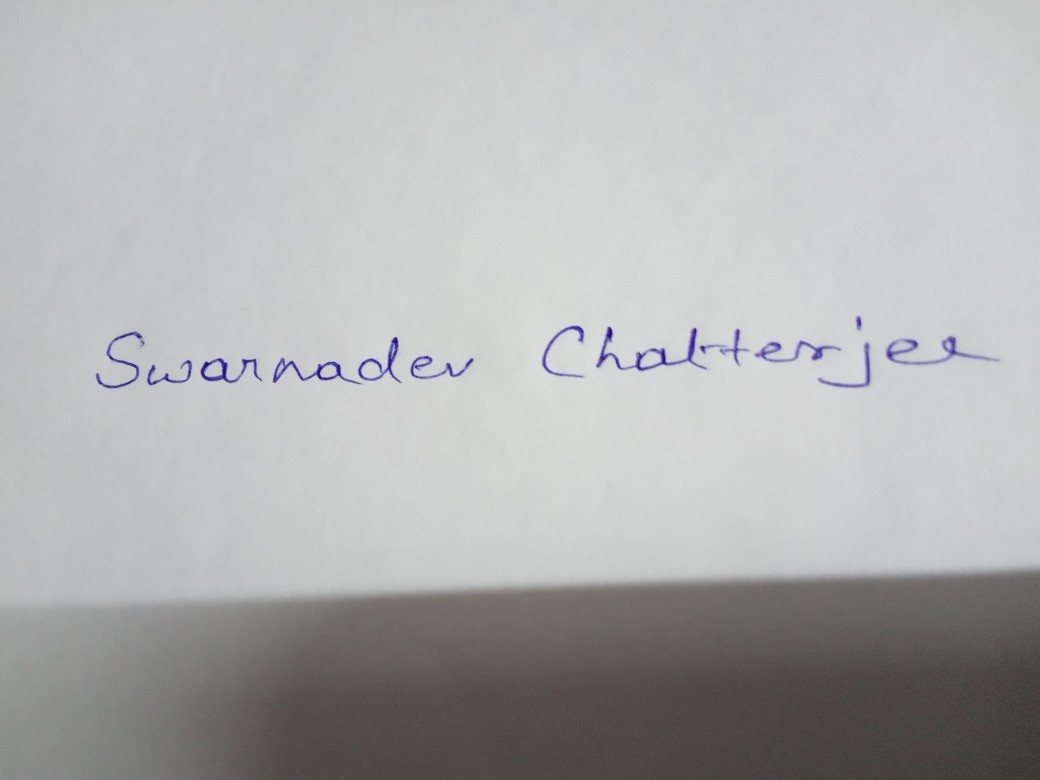 Swarnadev Chatterjee